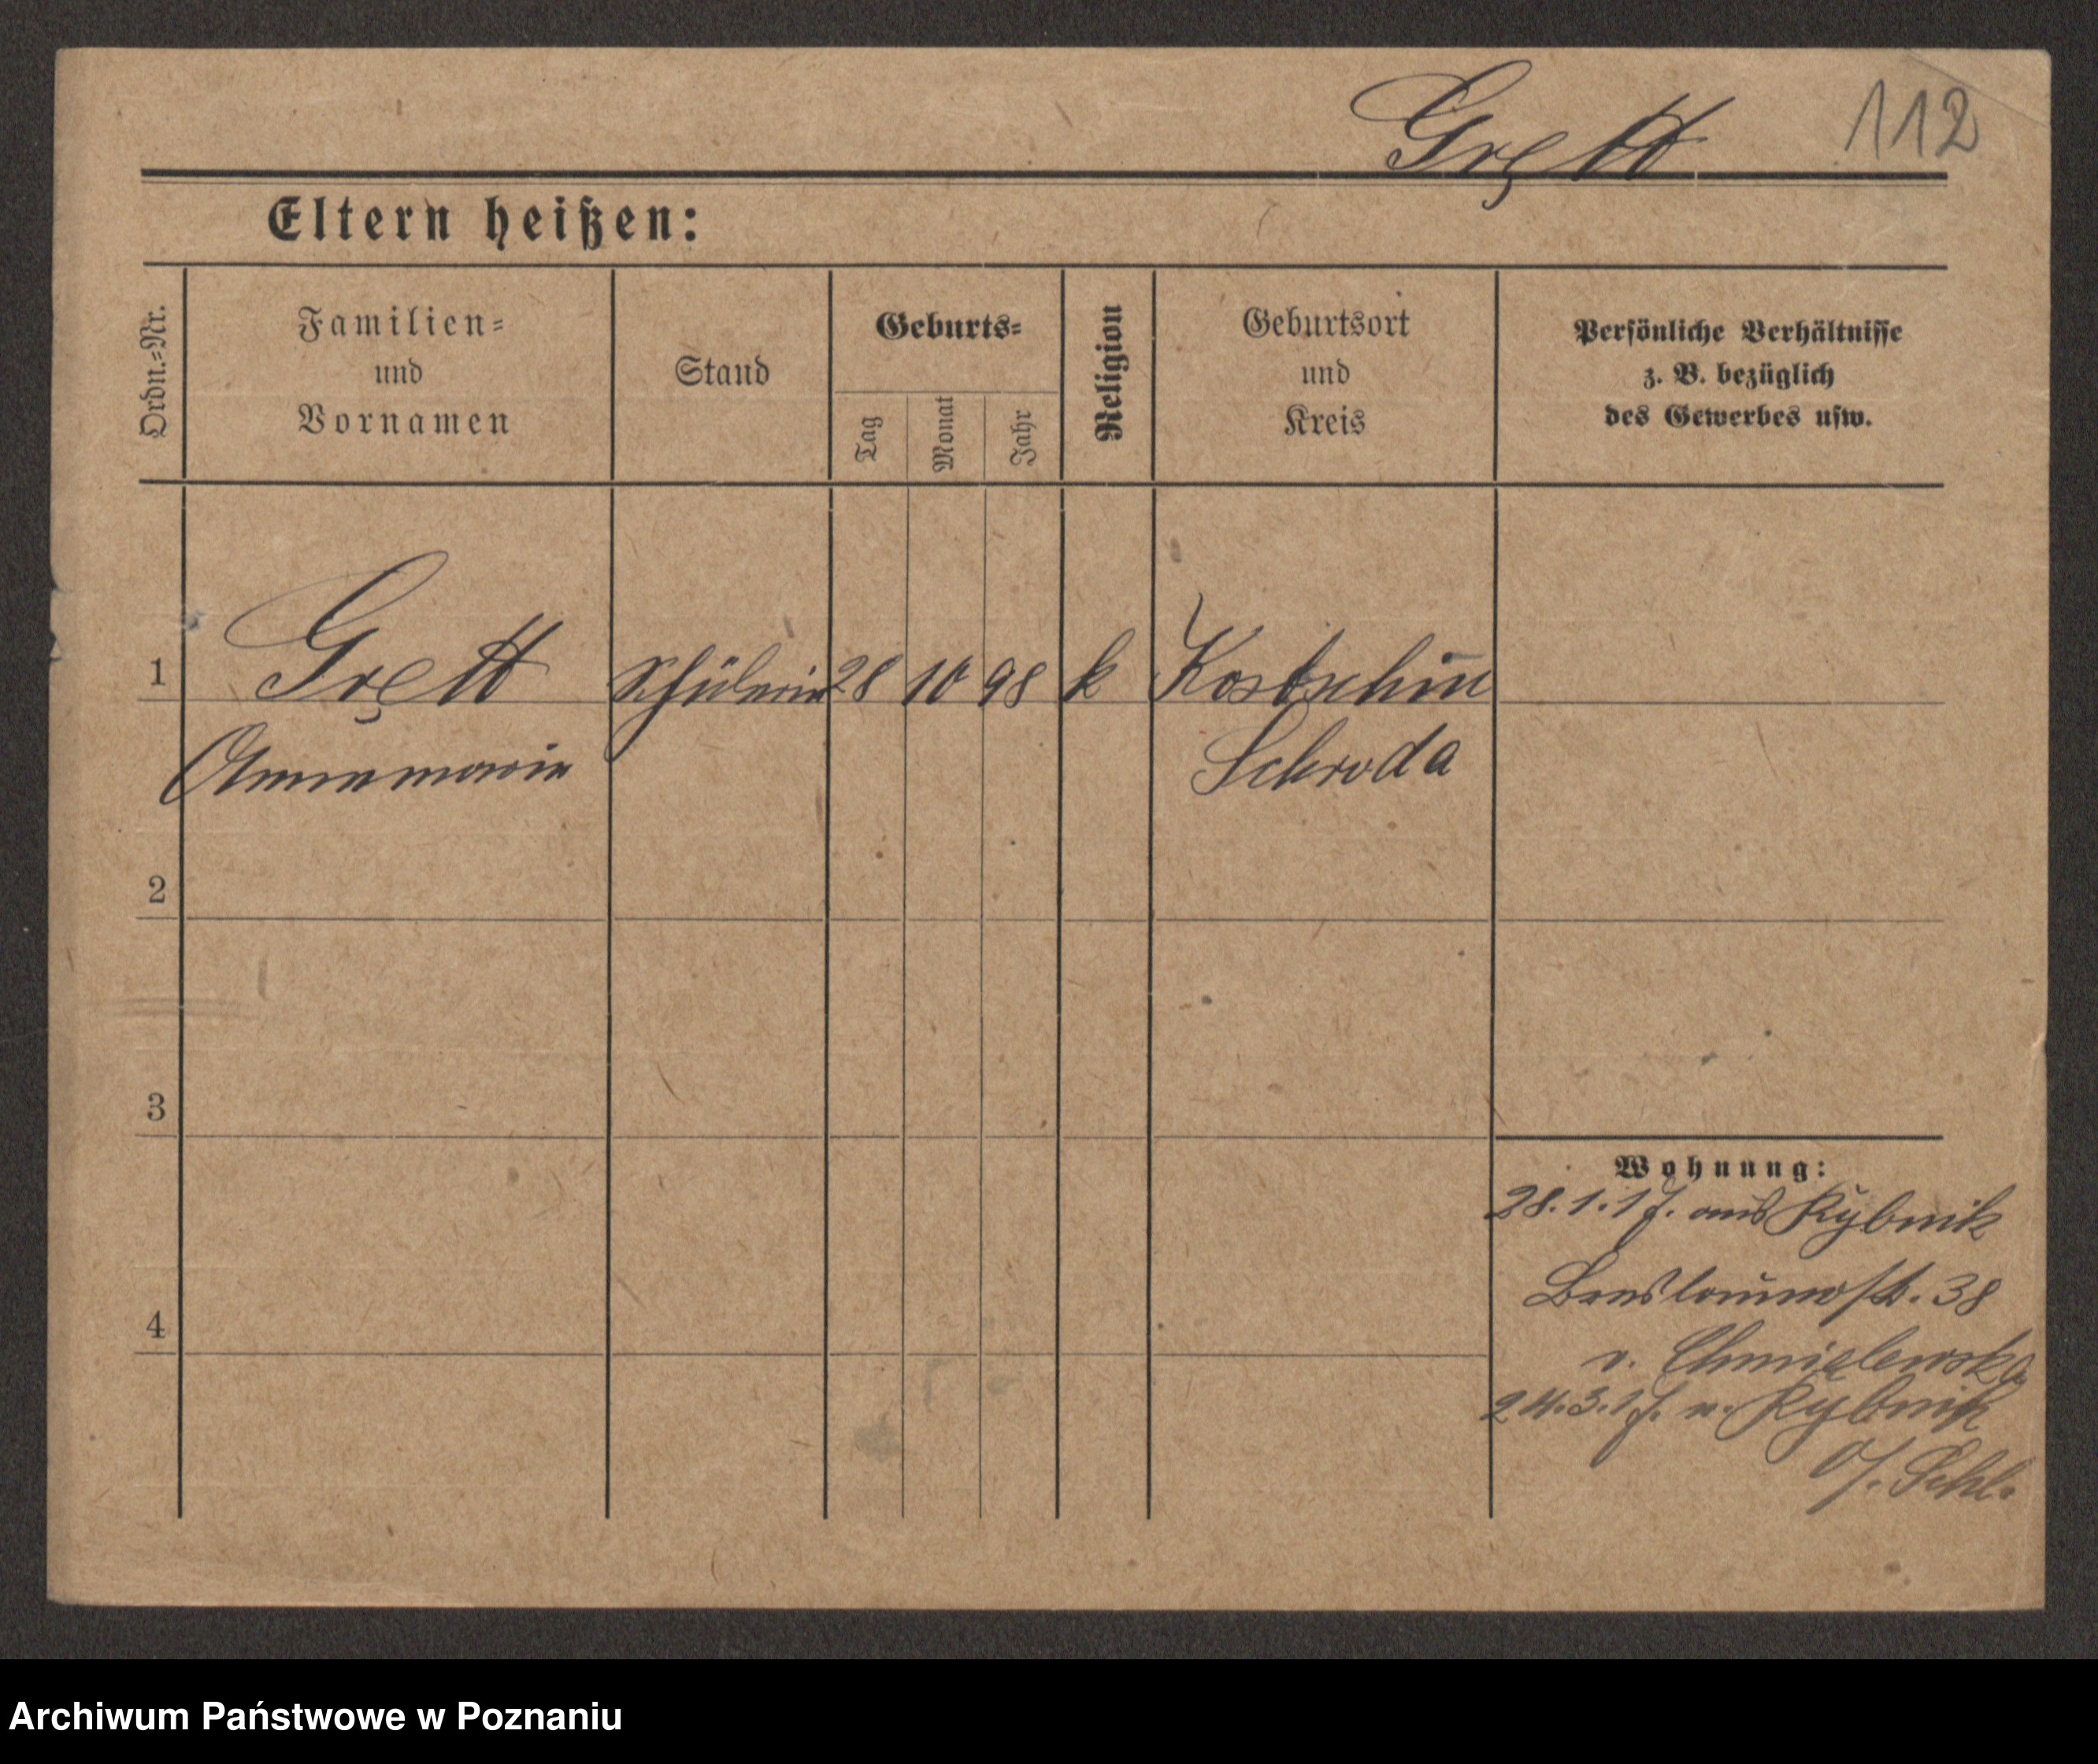 Grętt 112
Eltern heißen:
Ordn.=Nr.
Familien=
und
Vornamen
Stand
Geburts=
Tag
Monat
Jahr
Religion
Geburtsort
und
Kreis
Persönliche Verhältnisse
z. B. bezüglich
des Gewerbes usw.
1 Grętt Schülerin 28 10 98 k Kostschin
Annemarie Schroda
2
3
4
Wohnung:
28.1.17. aus Rybnik
Breslauerstr. 38
v. Chmielewska
24.3.17. n. Rybnik
O/. Schl.
Archiwum Państwowe w Poznaniu